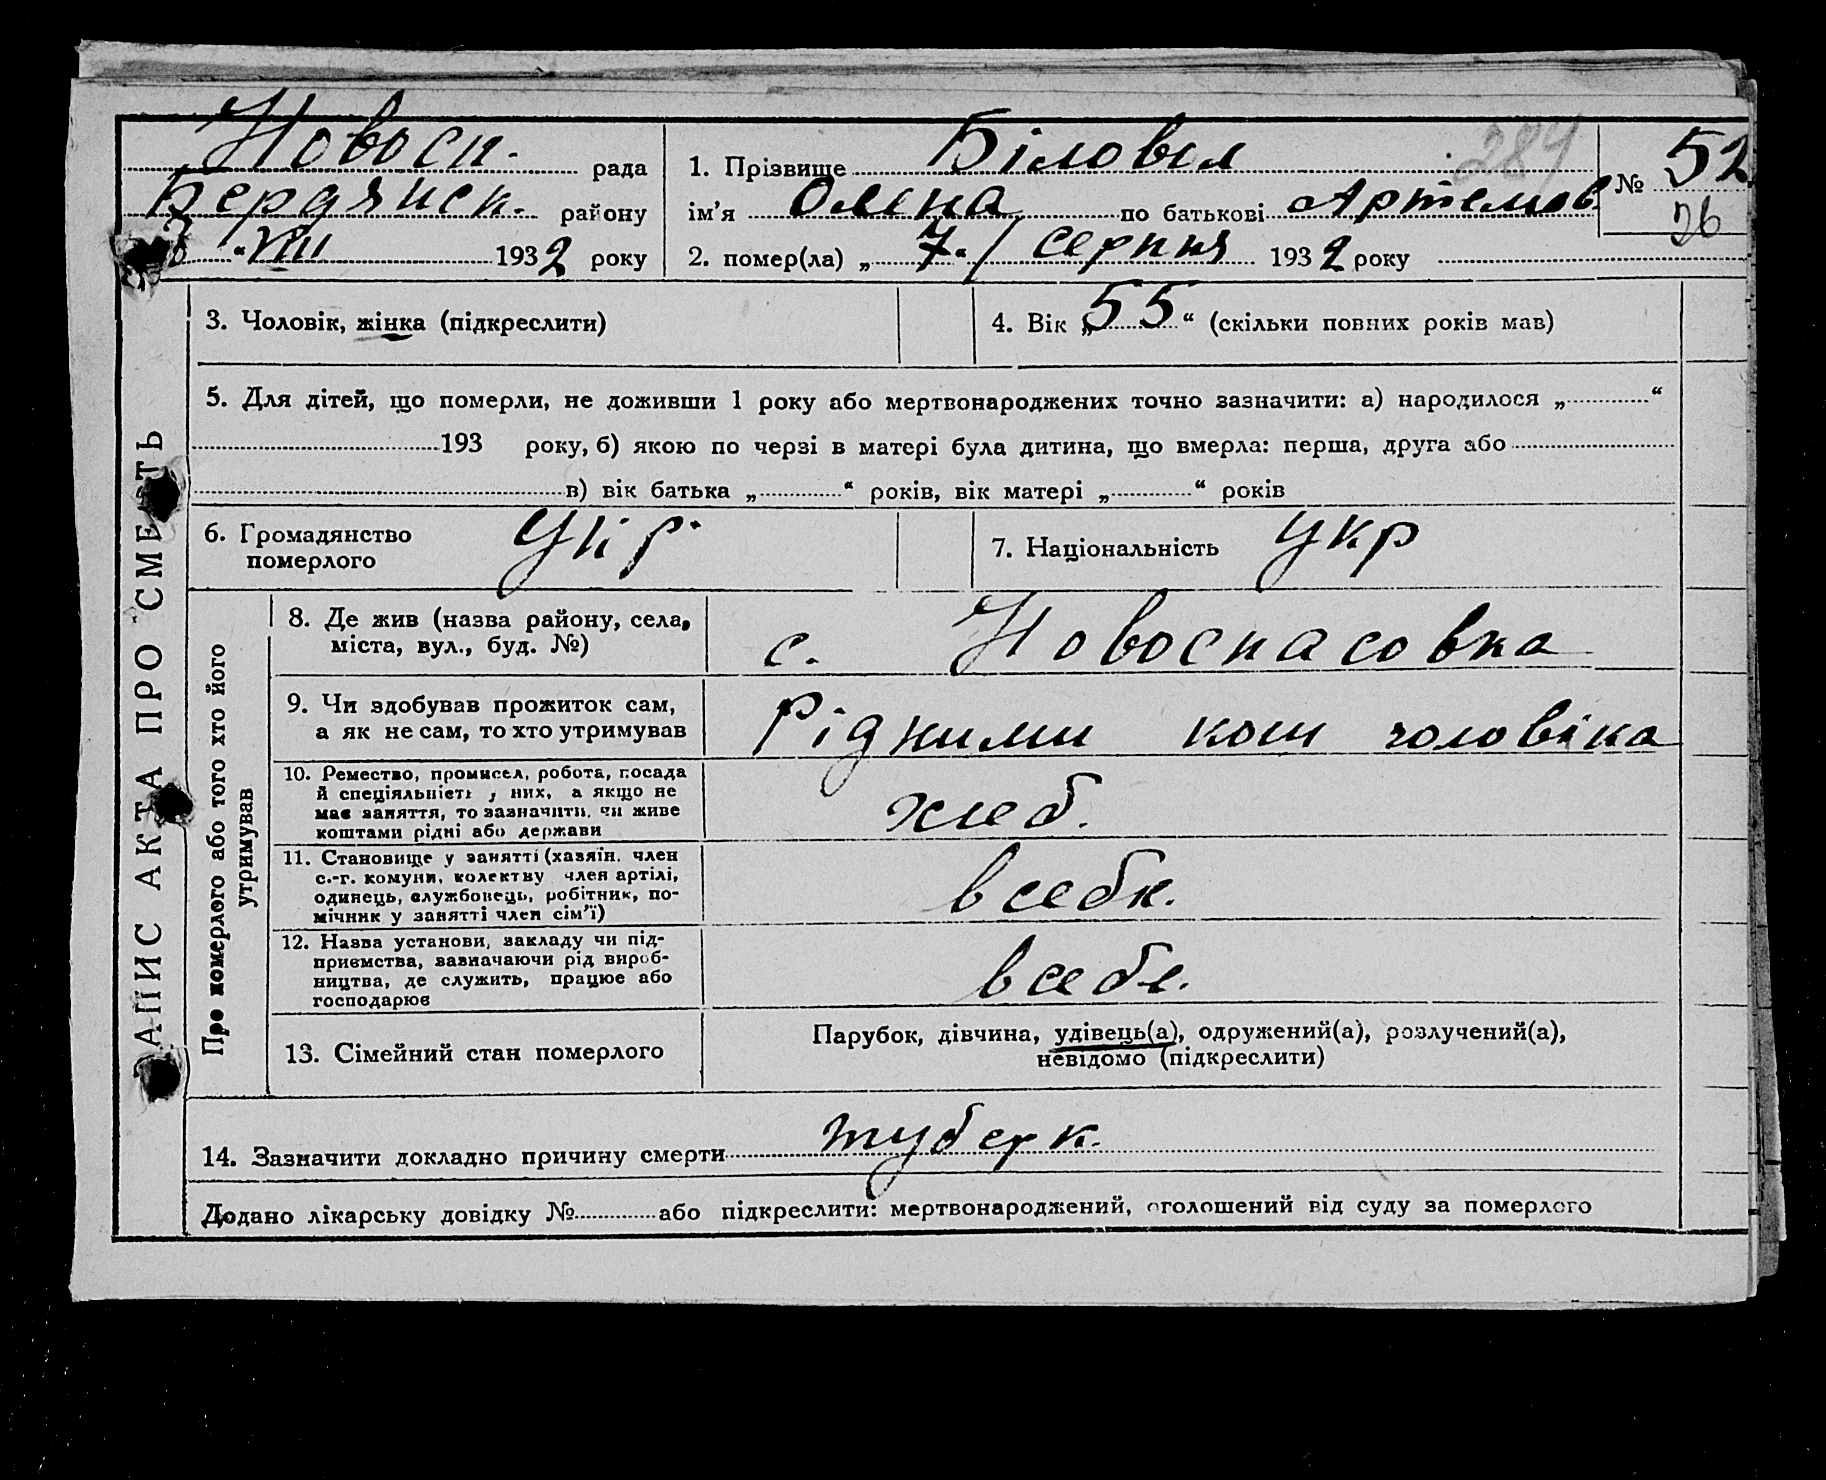 Новосп. рада
Бердянск. району
7 "VIII 1932 року
1. Прізвище Біловол
ім'я Олена по батькові Артемов.
2. помер(ла) „7"/ серпня 1932 року
284
№ 52
26
ЗАПИС АКТА ПРО СМЕРТЬ
3. Чоловік, жінка (підкреслити)
4. Вік „55“ (скільки повних років мав)
5. Для дітей, що померли, не доживши 1 року або мертвонароджених точно зазначити: а) народилося „ “
193 року, б) якою по черзі в матері була дитина, що вмерла: перша, друга або
в) вік батька „ “ років, вік матері „ “ років
6. Громадянство
померлого
Укр.
7. Національність Укр
Про померлого або того хто його
утримував
8. Де жив (назва району, села,
міста, вул., буд. №)
с. Новоспасовка
9. Чи здобував прожиток сам,
а як не сам, то хто утримував
Рідними кош чоловіка
10. Ремество, промисел, робота, посада
й спеціяльність у них, а якщо не
має заняття, то зазначити, чи живе
коштами рідні або держави
хлеб.
11. Становище у занятті (хазяїн, член
с.-г. комуни, колектву член артілі,
одинець, службовець, робітник, по-
мічник у занятті член сім'ї)
в себк.
12. Назва установи, закладу чи під-
приємства, зазначаючи рід вироб-
ництва, де служить, працює або
господарює
в себе.
13. Сімейний стан померлого
Парубок, дівчина, удівець(а), одружений(а), розлучений(а),
невідомо (підкреслити)
14. Зазначити докладно причину смерти туберк.
Додано лікарську довідку № або підкреслити: мертвонароджений, оголошений від суду за померлого